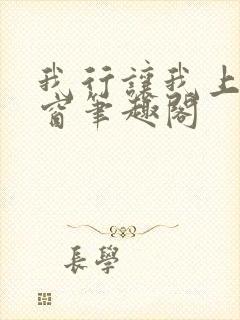 我行讓我上
窗筆趣閣
長學